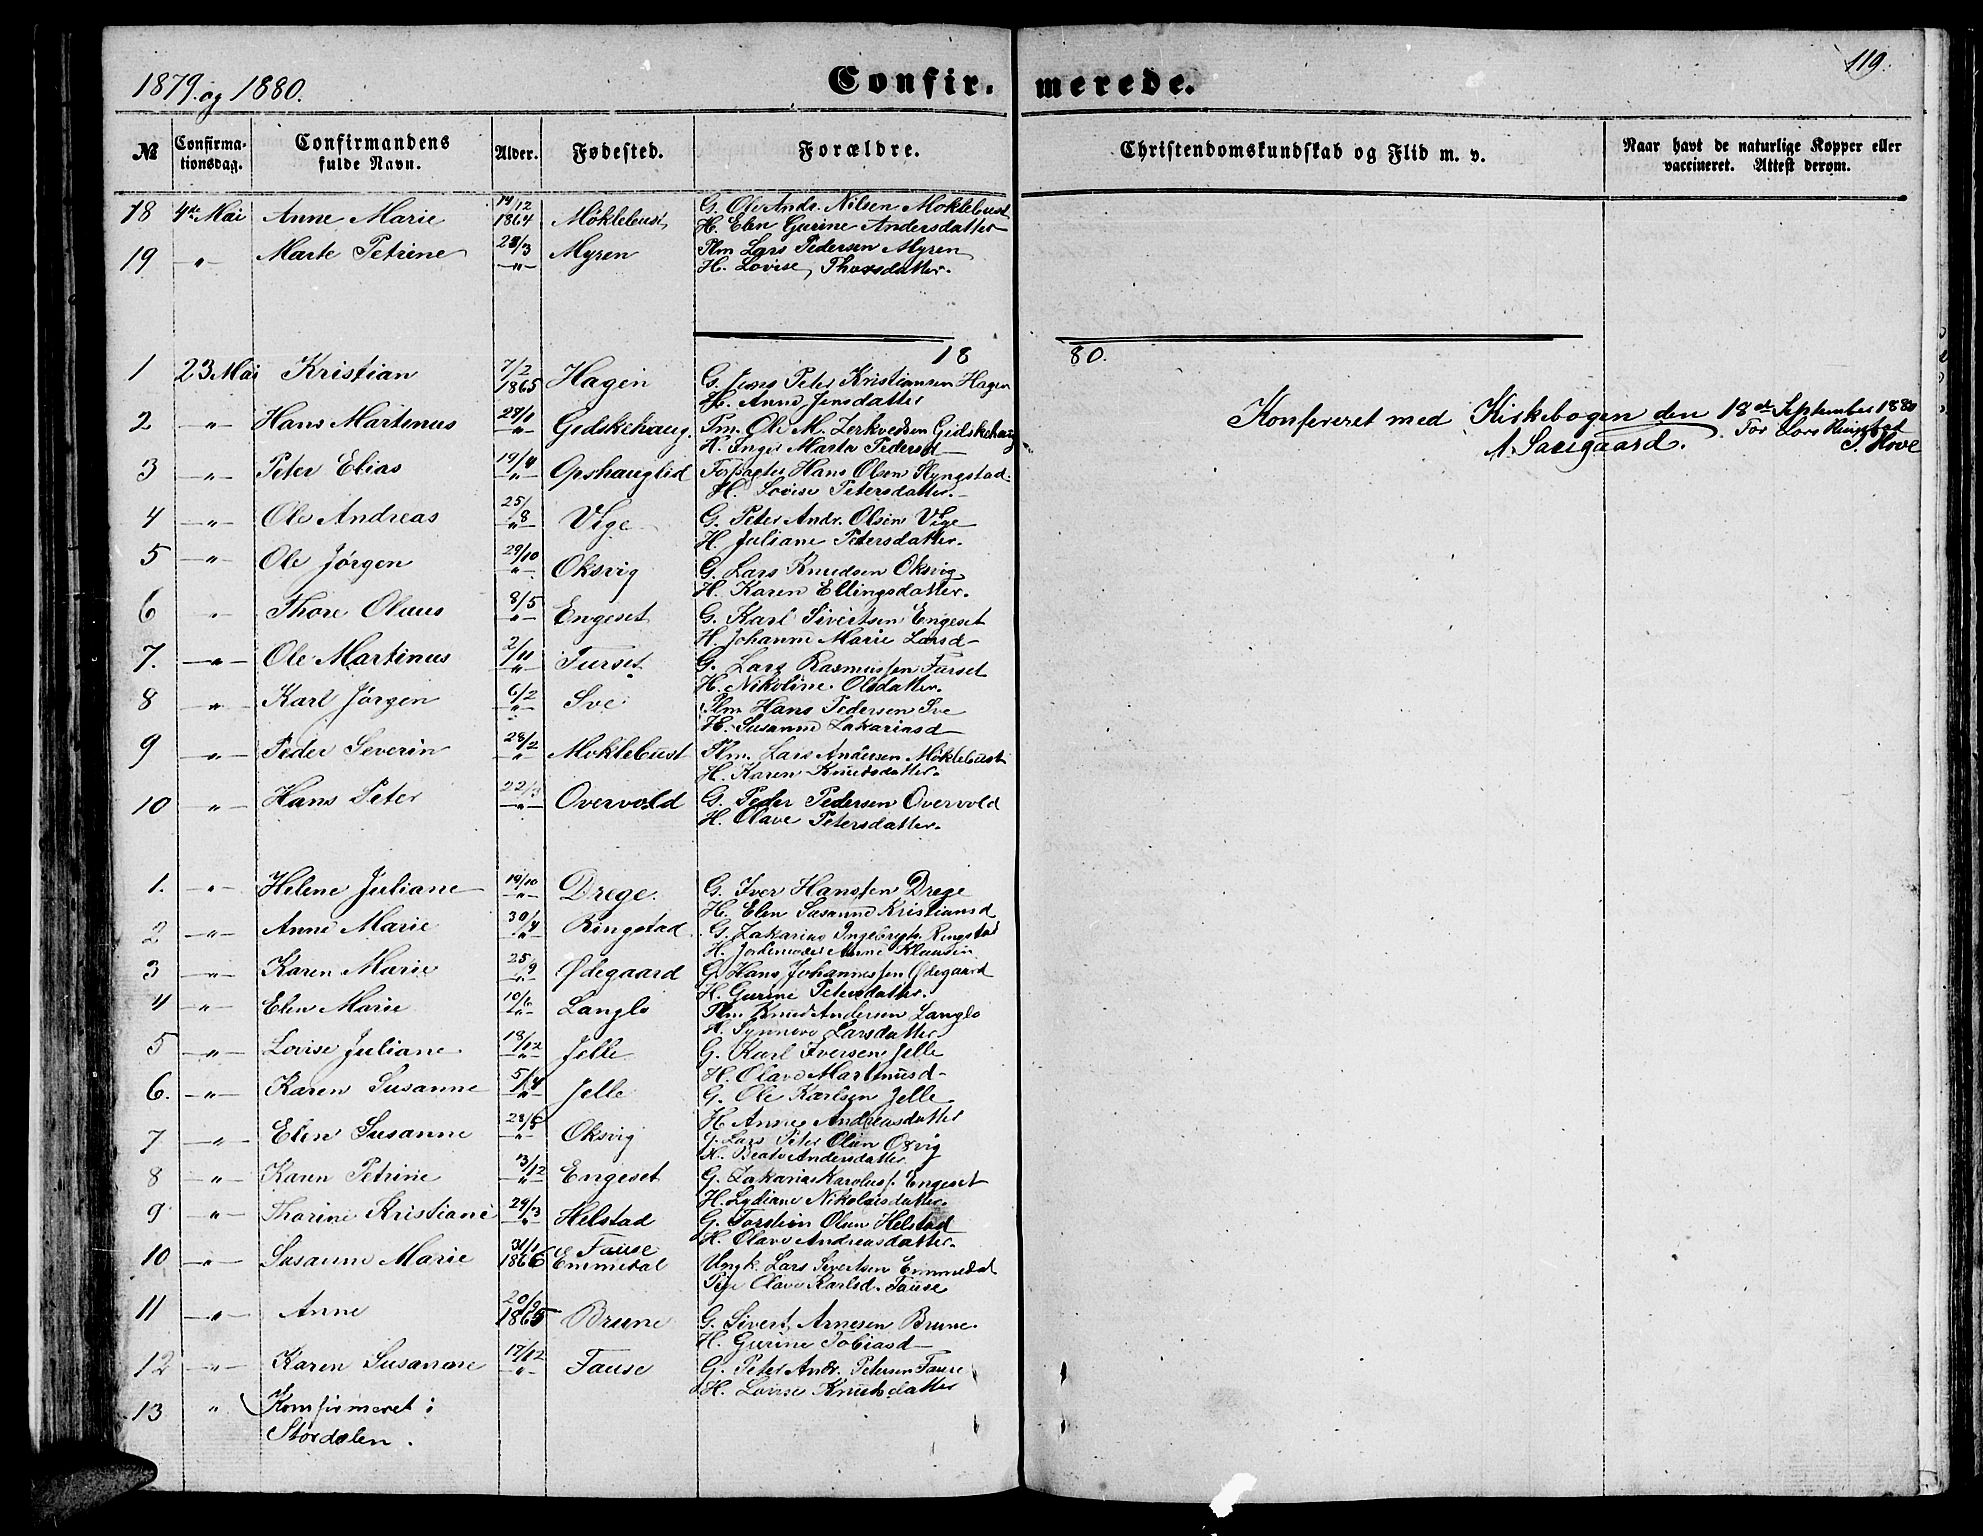 1879. og 1880.
Confir- merede.
119.
№ Confirma-tionsdag. Confirmandens fulde Navn. Alder. Fødested. Forældre. Christendomskundskab og Flid m. v. Naar havt de naturlige Kopper eller vaccineret. Attest derom.
18 4de Mai Anne Marie 14/12 1864 Møklebust G. Ole Andr. Nilsen Moklebust
H. Elen Gurine Andersdatter
19 " Marte Petrine 28/3 " Myren Plm Lars Pedersen Myren
H. Lovise Thoresdatter.
1880.
1 23 Mai Kristian 7/2 1865 Hagen G. Jens Peter Kristiansen Hagen
H. Anne Jensdatter
2 " Hans Martinus 28/1 " Gidskehaug. Pm. Ole M. Zerkvedsen Gidskehaug
H. Inger Marta Pedersd
Konfereret med Kirkebogen den 18de September 1880
A. Saxegaard. For Lars Ringstad
S. Hove
3 " Peter Elias 19/4 " Opshauglid Forpagter Hans Olsen Ryngstad.
H. Lovise Petersdatter.
4 " Ole Andreas 25/8 " Vige G. Peter Andr. Olsen Vige
H. Juliane Petersdatter.
5 " Ole Jørgen 29/10 " Oksvig G. Lars Knudsen Oksvig
H. Karen Ellingsdatter.
6 " Thore Olaus 8/5 " Engeset G. Karl Sivertsen Engeset
H. Johanne Marie Larsd
7. " Ole Martinus 2/11 " Furset G. Lars Rasmussen Furset
H. Nikoline Olsdatter.
8 " Karl Jørgen 6/2 " Sve Plm Hans Pedersen Sve
H. Susanne Zakariasd
9 " Peder Severin 28/2 " Moklebust Plm. Lars Andersen Møklebust
H. Karen Knudsdatter.
10 " Hans Peter 22/3 " Overvold G. Peder Pedersen Overvold
H. Olave Petersdatter.
1. " Helene Juliane 19/10 " Drege. G. Iver Hanssen Drege
H. Elen Susanne Kristiansd
2 " Anne Marie 30/4 " Ringstad. G. Zakarias Ingebrgts. Ringstad
H. Jordemoder Anne Klausen
3 " Karen Marie 25/9 " Ødegaard G. Hans Johannessen Ødegaard
H. Gurine Petersdatter.
4 " Elen Marie 10/6 " Langlo Plm Knud Andersen Langlo
H. Synnøve Larsdatter
5 " Lovise Juliane 18/12 " Jelle G. Karl Iversen Jelle
H. Olave Martinusd
6. " Karen Susanne 5/4 " Jelle G. Ole Karlsen Jelle
H Anne Andreasdatter
7 " Elen Susanne 28/5 " Oksvig G. Lars Peter Olsen Oxvig
H. Beate Andersdatter
8 " Karen Petrine 13/12 " Engeset G. Zakarias Karolus s. Engeset
H. Lydiane Nikolaisdatter.
9 " Thorine Kristiane 29/3 " Helstad G. Torstein Olsen Helstad
H. Olave Andreasdatter.
10 " Susanne Marie 31/1 1866 Fause Emmedal Ungk. Lars Sivertsen Emmedal
Pige Olave Karlsd. Fause
11 " Anne 20/9 1865 Brune G. Sivert Arnesen Brune.
H. Gurine Tobiasd
12 " Karen Susanne 17/12 " Fause G. Peter Andr. Petersen Fause
H. Lovise Knudsdatter
13 " Konfirmeret i
Stordalen.